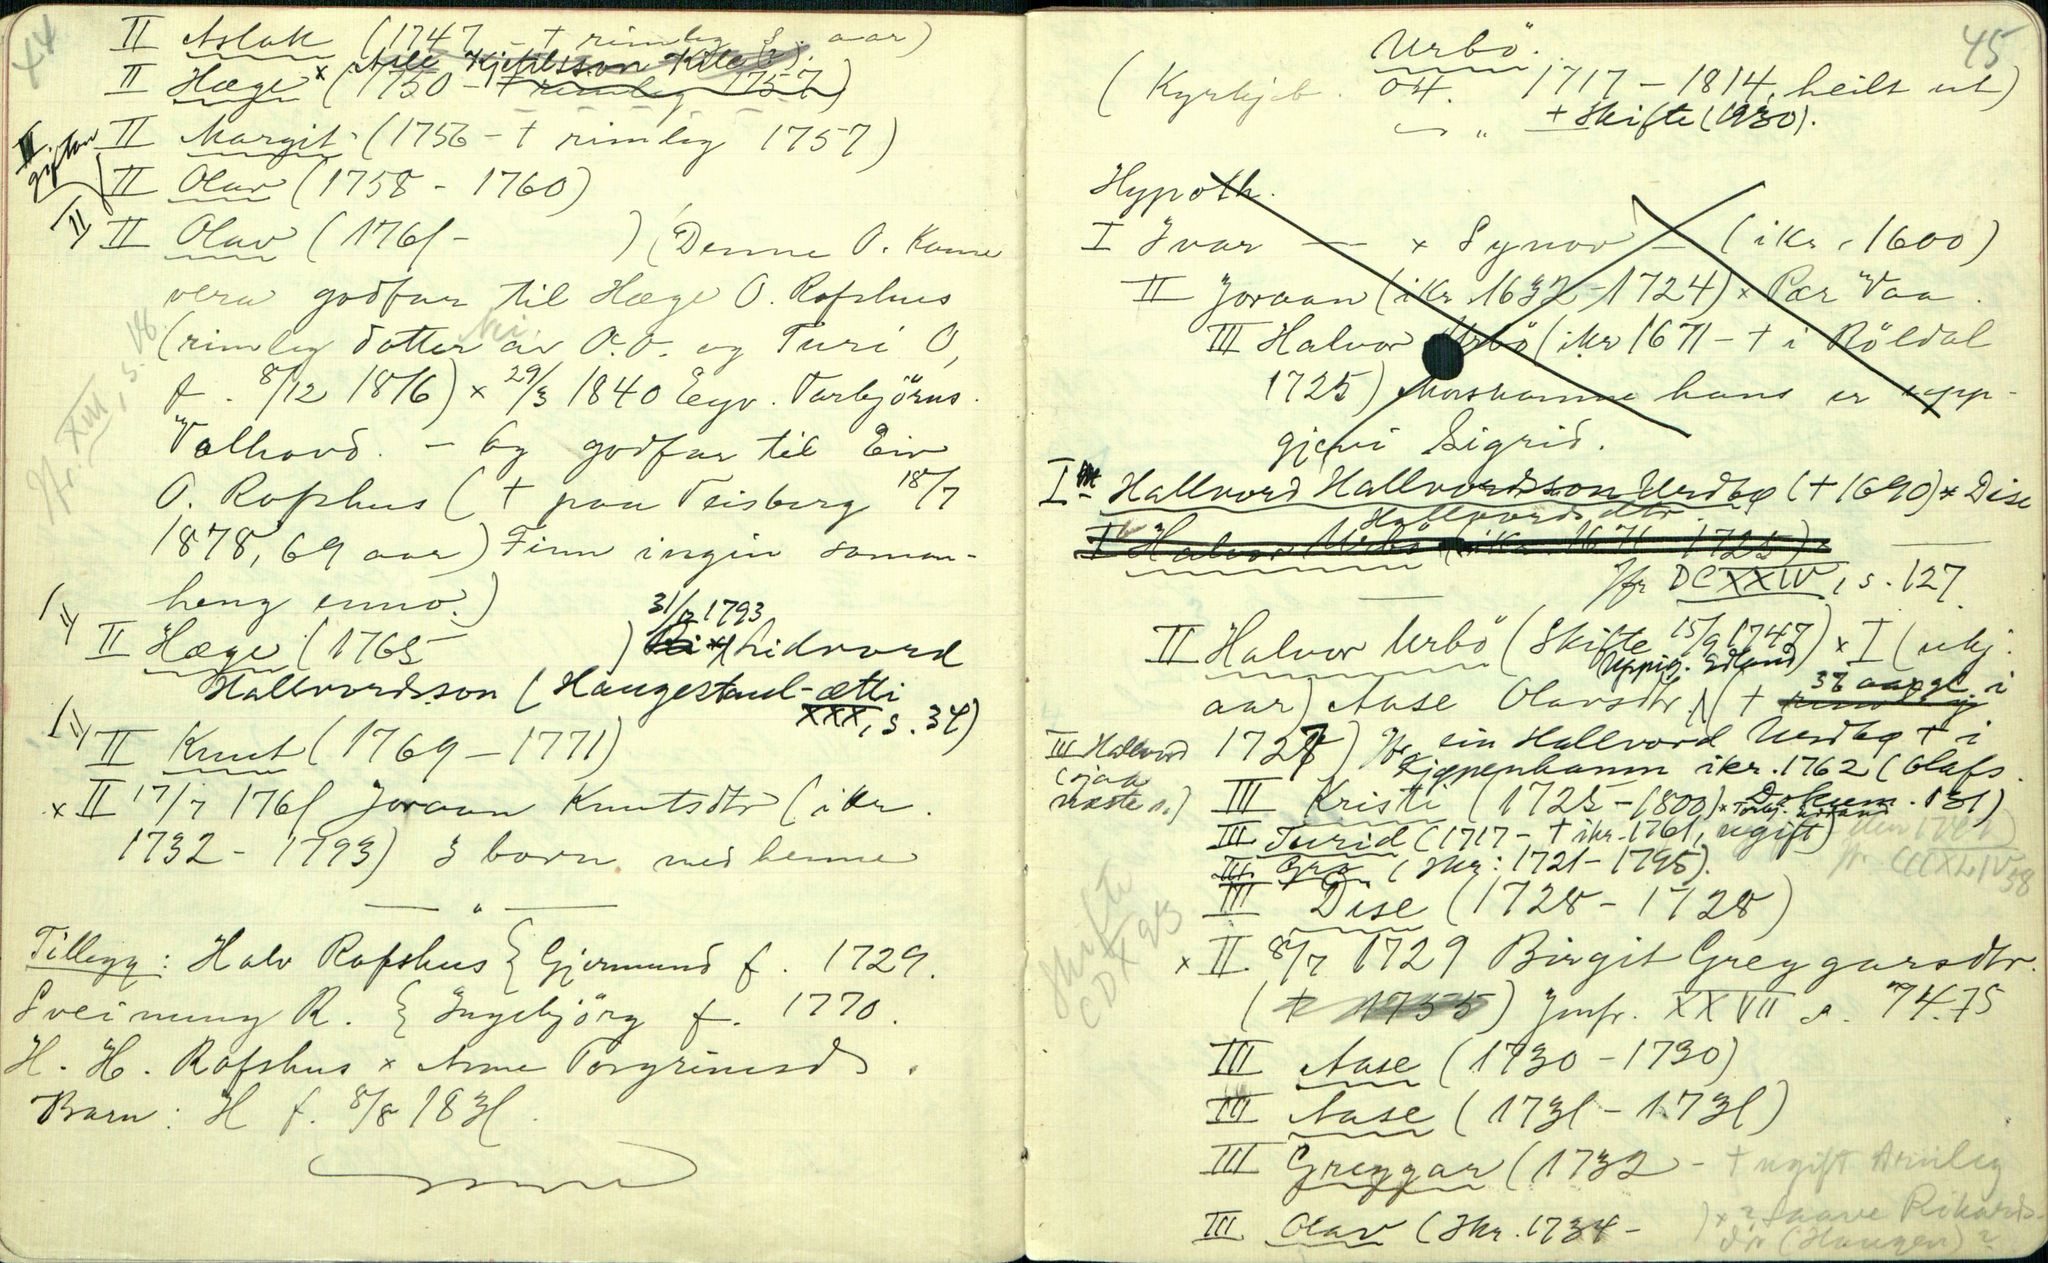 44
II Aslak (1747 - † rimleg s. aar)
II Hæge x (Asle Kjetilsson Kile (?).
(1750 - † rimleg 1757)
II Margit (1756 - † rimleg 1757)
II Olav (1758 - 1760)
II Olav (1761 - ) (Denne O. kunne
vera godfar til Hæge O. Rofshus
(rimleg dotter av O.O. og Turi O,
f. 8/12 1816) x 29/3 1840 Eyv. Tarbjörns.
Valhovd. - Og godfar til Eiv
O. Rofshus († paa Teisberg 18/7
1878, 69 aar) Finn ingin saman-
heng enno.)
Jfr. XIII, s. 16.
31/12 1793
II Hæge (1765 ) x Lidvord
Hallvordsson (Haugestaul-ætti
XXX, s. 34)
II Knut (1769 - 1771)
x II 17/7 1761 Joraan Knutsdtr (ikr.
1732 - 1793) 3 born med henne
Tillegg: Halv Rofshus { Gjermund f. 1729.
Sveinung R. { Ingebjörg f. 1770.
H. H. Rofshus x Anne Torgrimsd.
Barn: H f. 8/8 1831.
45
Urbö.
(Kyrkjeb. OH. 1717 - 1814, heilt ut)
— " + Skifte (1930).
Hypoth.
I Ivar — x Synov — (ikr. 1600)
II Joraan (ikr 1632 - 1724) x Pær Vaa.
III Halvor Urbö (ikr 1671 - † i Röldal
1725) Morsnamne hans er upp-
gjevi Sigrid.
I Hallvord Hallvordsson Urdbø († 1690) x Dise
Hallvordsdtr.
I Halvor Urbö (ikr. 1671 - 1725) x
Jfr DCXXIV, s. 127.
II Halvor Urbö (Skifte 15/9 1747) x I (ukj.
aar) Aase Olavsdtr († 38 aar gl. i
1728) Jfr ein Hallvord Urdbø † i
Kjøpenhamn ikr. 1762 (Olafs.
Dokum. 131)
III Hallvord
(sjaa
næste s.)
III Kristi (1725 - 1800)
III Turid (1717 - † ikr. 1761, ugift)
III Gro (Ikr: 1721 - 1795).
III Dise (1728 - 1728)
Skifte
CDX 93
x II 8/7 1729 Birgit Greggarsdtr.
(† 1755) Jmfr. XXVII s. 74.75
III Aase (1730 - 1730)
III Aase (1731 - 1731)
III Greggar (1732 - † ugift
III Olav (Ikr. 1734 - ) x ? Saave Rikards-
dtr (Haugen) ?